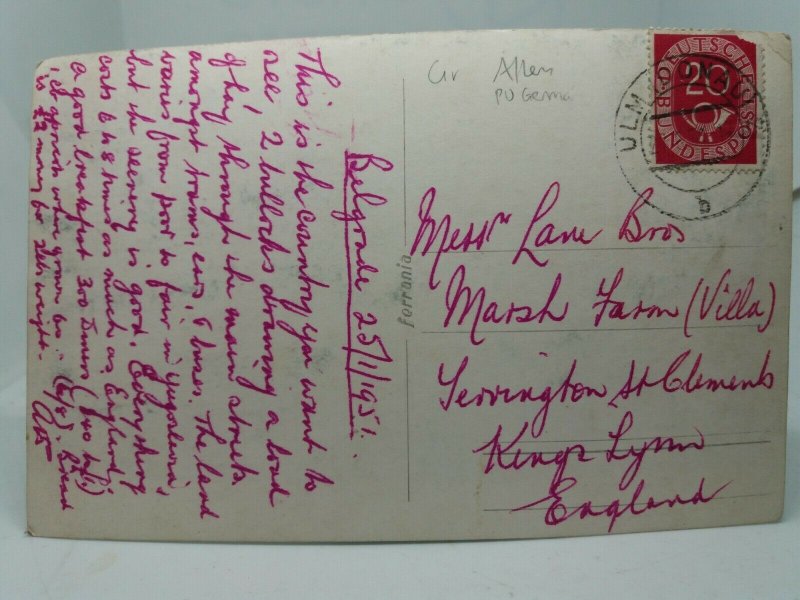 Belgrade 25/1/1951.
This is the country you want to
see 2 bullocks drawing a load
of hay through the main streets
amongst trams, cars, & buses. The land
varies from poor to fair in Yugoslavia
but the scenery is good. Everything
costs 6 to 8 times as much as England
a good breakfast 300 dinars
is
may be
weight.
Ferrania
PU Germa
DEUTSCHE
20
BUNDESPOST
ULM (DONAU)
b
Messrs Lane Bros
Marsh Farm (Villa)
Terrington St Clements
Kings Lynn
England